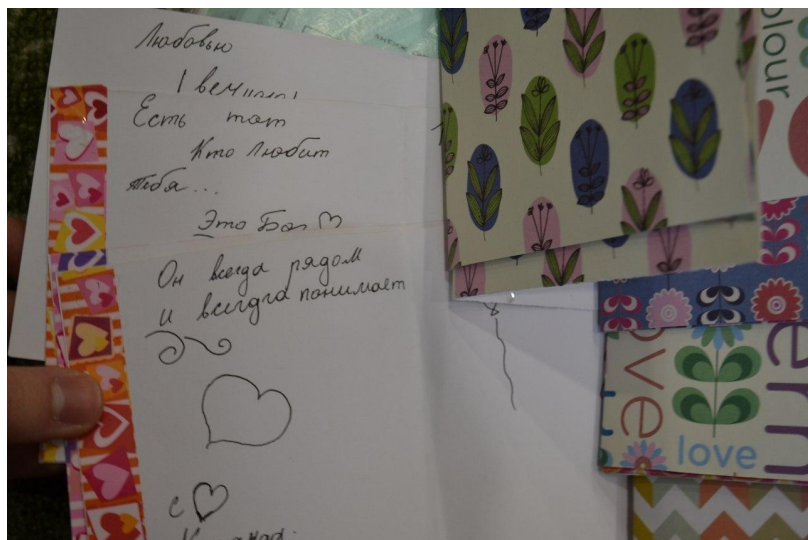 Любовью
I
Есть тот
Кто Любит
тебя...
Это Бог
Он всегда рядом
и всегда понимает
с
colour
love
love